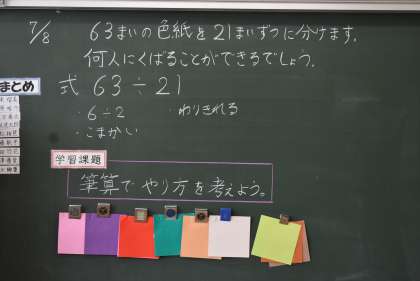 7/8
63まいの色紙を21まいずつに分けます。
何人にくばることができるでしょう。
まとめ
式 63÷21
・6÷2 ・わりきれる
・こまかい
学習課題
筆算でやり方を考えよう。